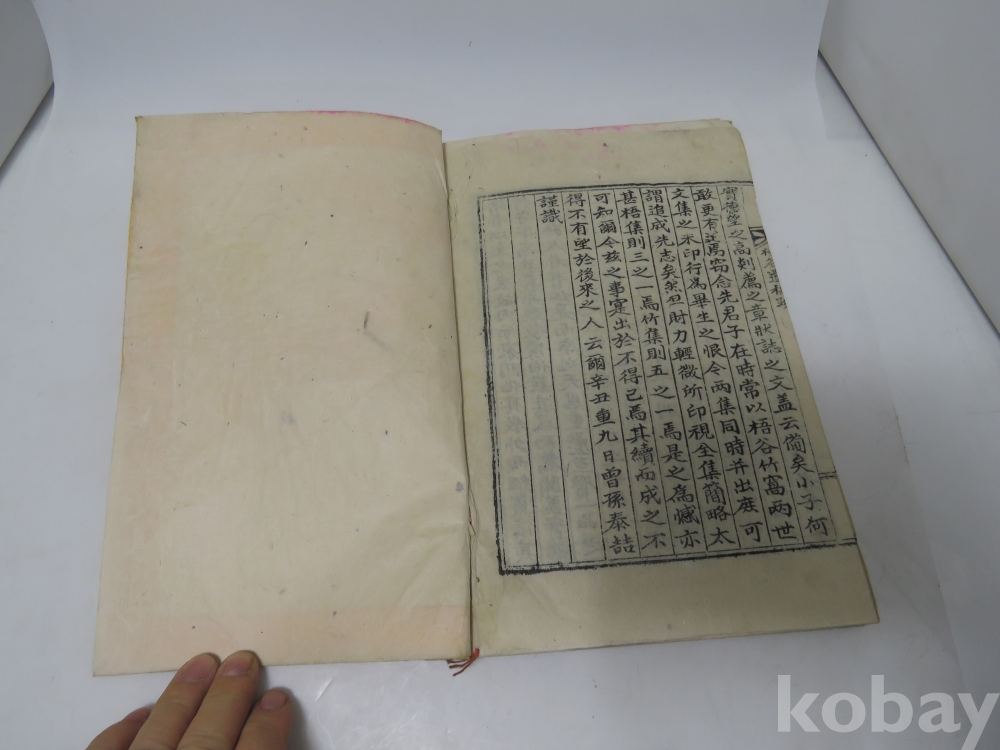 實德望之高剡薦之章狀誌之文盖云備矣小子何
敢更有述焉窃念先君子在時常以梧谷竹窩兩世
文集之未印行為畢生之恨今兩集同時并出庶可
謂追成先志矣然但財力輕微所印視全集簡略太
甚梧集則三之一焉竹集則五之一焉是之為憾亦
可知爾今玆之事寔出於不得已焉其續而成之不
得不有望於後來之人云爾辛丑重九日曾孫泰喆
謹識
kobay